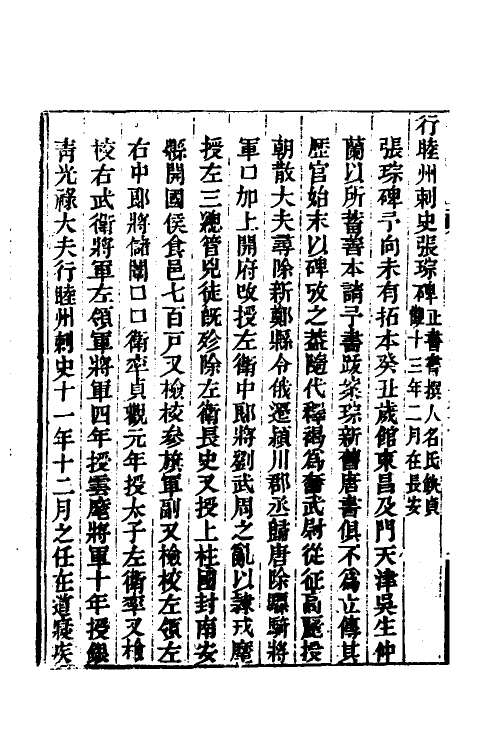 行睦州刺史張琮碑正書書撰人名氏缺貞觀十三年二月在長安
張琮碑予向未有拓本癸丑歲館東昌及門天津吳生仲
蘭以所蓄善本請予書跋案琮新舊唐書俱不為立傳其
歷官始末以碑攷之蓋隨代釋褐為奮武尉從征高麗授
朝散大夫尋除新鄭縣令俄遷潁川郡丞歸唐除驃騎將
軍口加上開府改授左衛中郎將劉武周之亂以隷戎麾
授左三總管兇徒既殄除左衛長史又授上柱國封南安
縣開國侯食邑七百戸又檢校參旗軍副又檢校左領左
右中郎將儲闈口口衛率貞觀元年授太子左衛率又檢
校右武衛將軍左領軍將軍四年授雲麾將軍十年授銀
青光祿大夫行睦州刺史十一年十二月之任在道寢疾